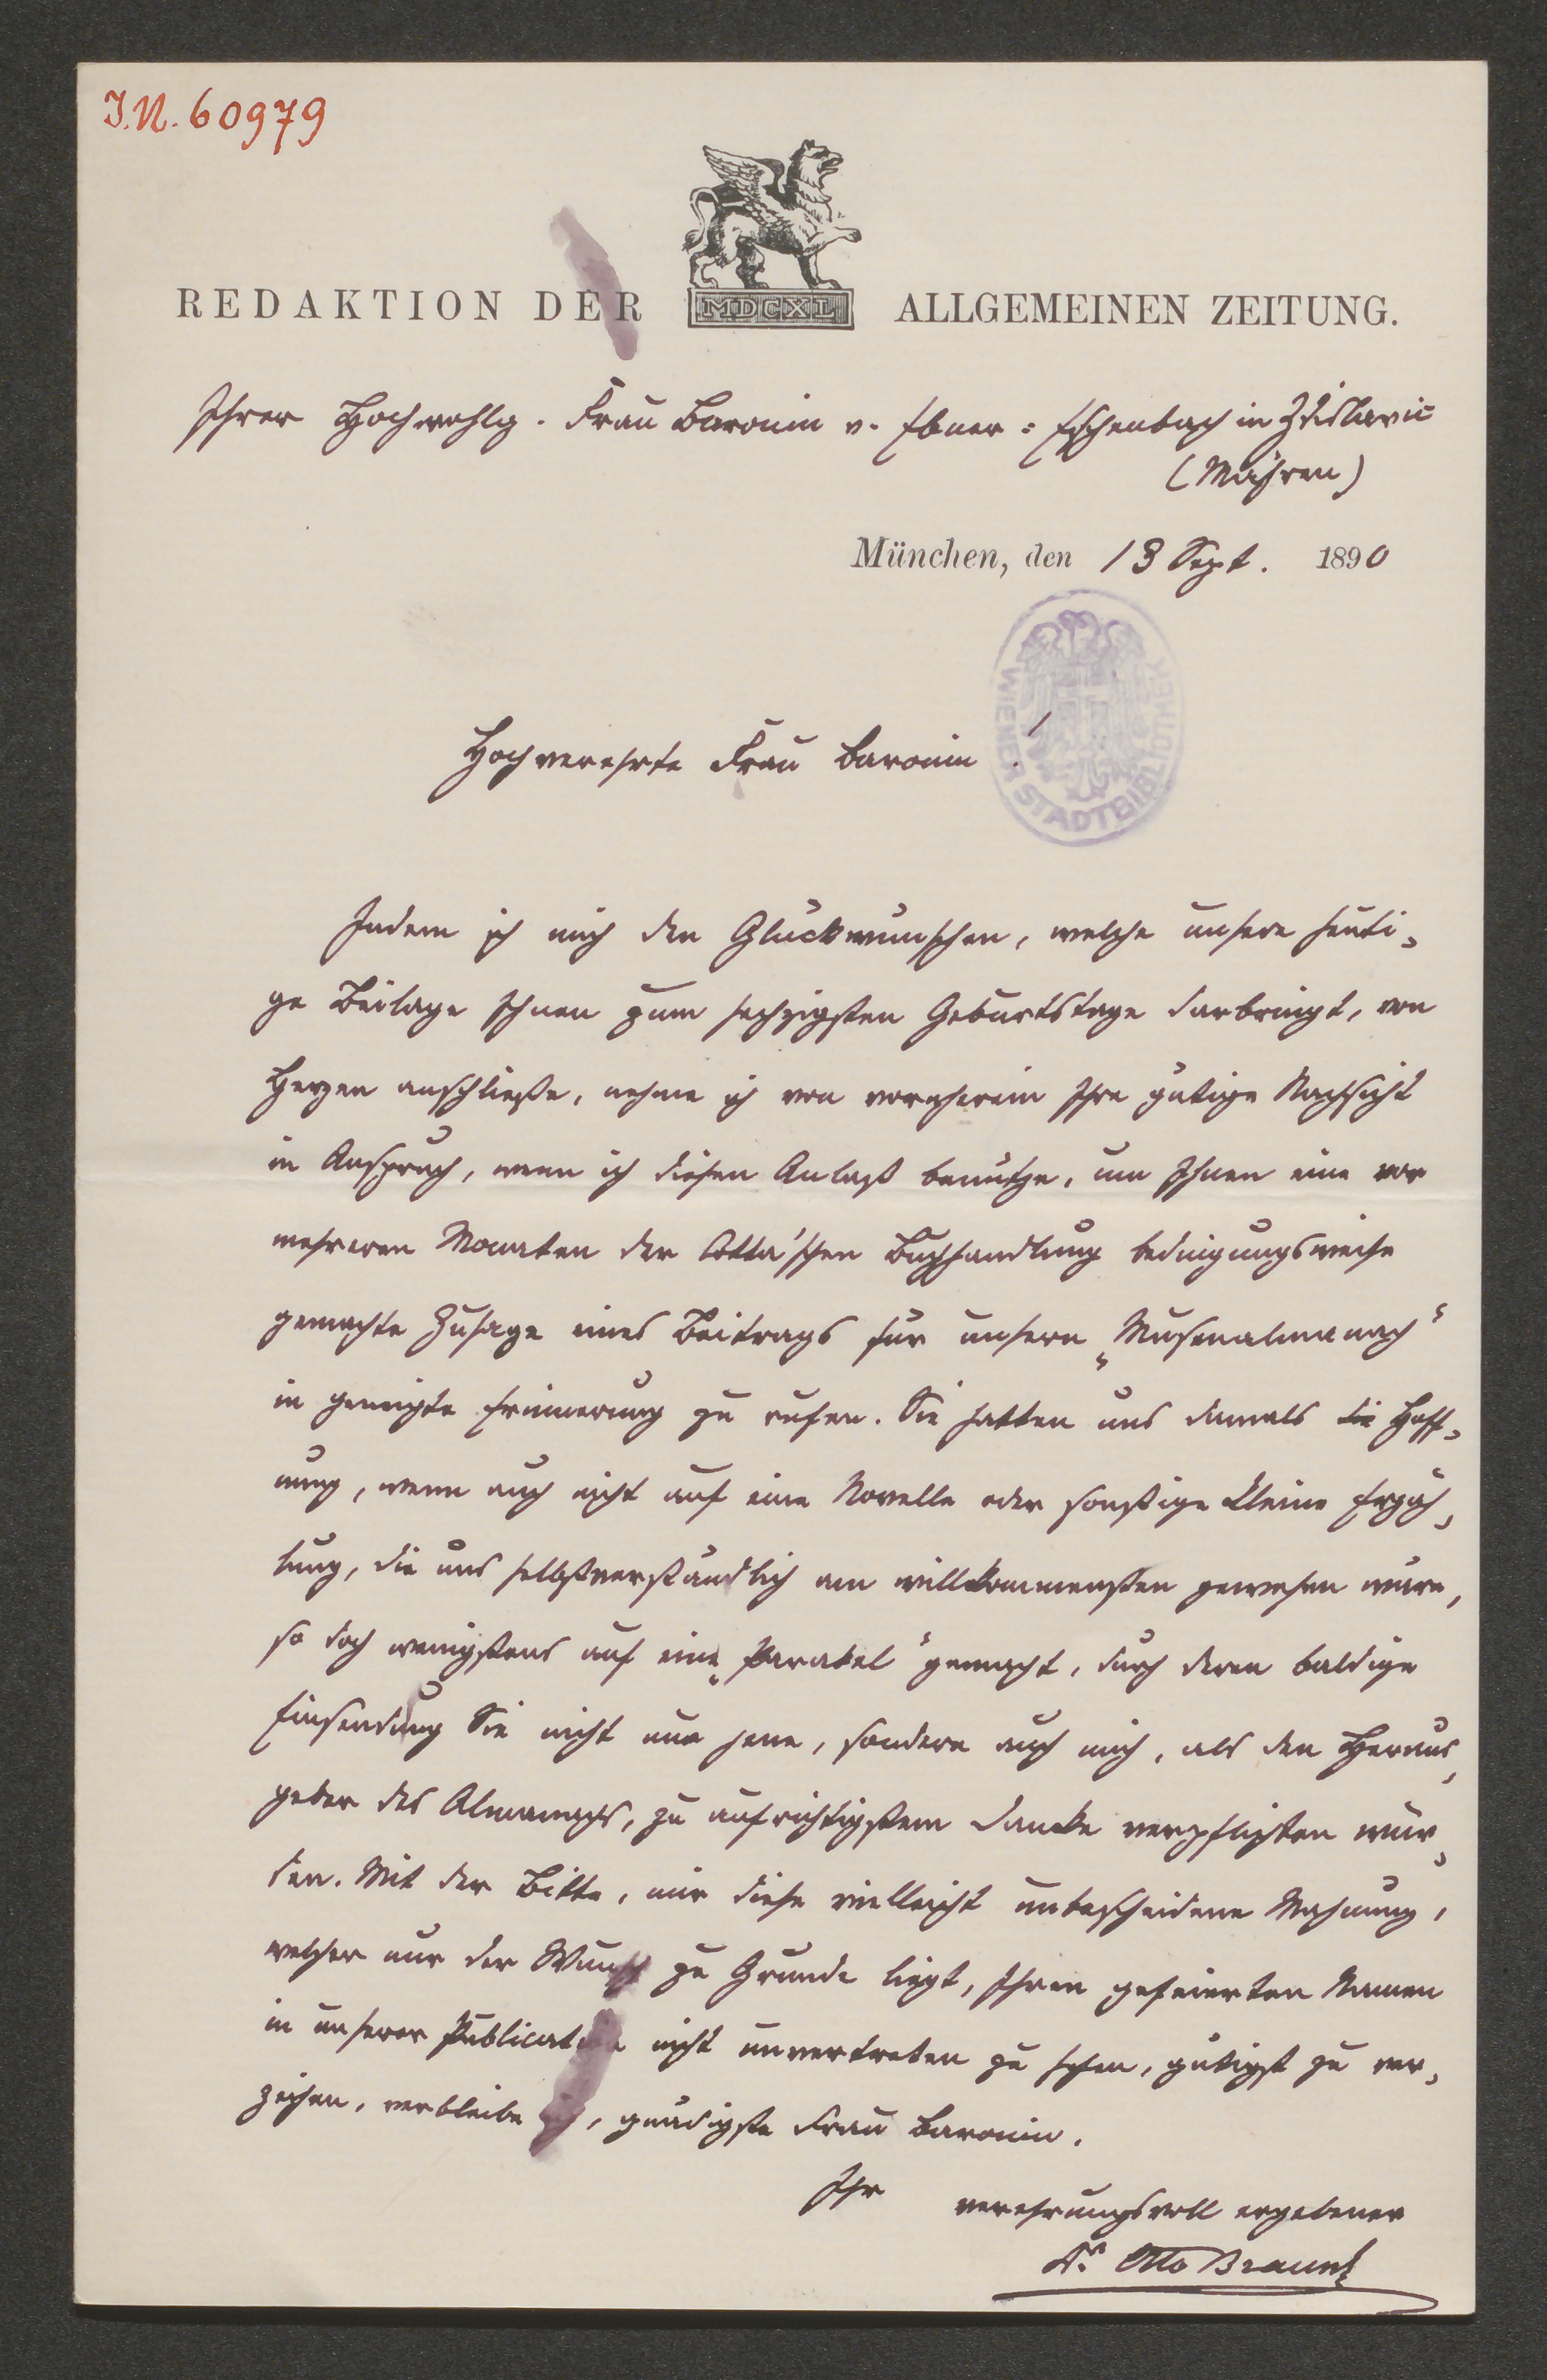 I.N. 60979
REDAKTION DER ALLGEMEINEN ZEITUNG.
MDCXL
Ihrer Hochwohlg. Frau Baronin v. Ebner-Eschenbach in Zdislavic
(Mähren)
München, den 13 Sept. 1890
WIENER STADTBIBLIOTHEK
Hochverehrte Frau Baronin!
Indem ich mich den Glückwünschen, welche unsere heuti-
ge Beilage Ihnen zum sechzigsten Geburtstage darbringt, von
Herzen anschließe, nehme ich von vornherein Ihre gütige Nachsicht
in Anspruch, wenn ich diesen Anlaß benutze, um Ihnen eine vor
mehreren Monaten der Cotta'schen Buchhandlung bedingungsweise
gemachte Zusage eines Beitrags für unsern „Musenalmanach“
in geneigte Erinnerung zu rufen. Sie hatten uns damals die Hoff-
nung, wenn auch nicht auf eine Novelle oder sonstige kleine Erzäh-
lung, die uns selbstverständlich am willkommensten gewesen wäre,
so doch wenigstens auf eine „Parabel“ gemacht, durch deren baldige
Einsendung Sie nicht nur jene, sondern auch mich, als den Heraus-
geber des Almanachs, zu aufrichtigstem Danke verpflichten wür-
den. Mit der Bitte, mir diese vielleicht unbescheidene Mahnung,
welcher nur der Wunsch zu Grunde liegt, Ihren gefeierten Namen
in unserer Publication nicht unvertreten zu sehen, gütigst zu ver-
zeihen, verbleibe ich, gnädigste Frau Baronin,
Ihr verehrungsvoll ergebener
Dr. Otto Braun